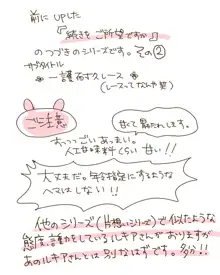 前に UPした
『続きをご所望ですか』
のつづきのシリーズです。その②
サブタイトル
※一護石寸久レース※
(レースってなんや 笑)
ご注意
甘くて崩れします。
おっっごいあっまい。
人工甘味料くらい甘い!!
大丈夫だ。年齢指定にするような
ヘマはしない!!
他のシリーズ(片想いシリーズ)で似たような
態度、言動をしているルキアさんがおりますが
あのルキアさんとは別なはずです。多分!!